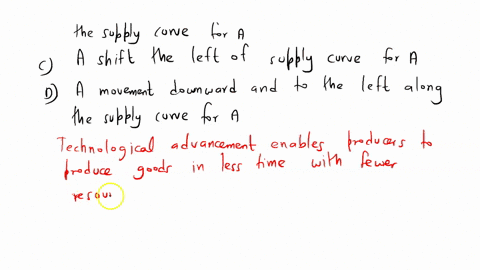 the supply curve for A
C) A shift the left of supply curve for A
D) A movement downward and to the left along
the supply curve for A
Technological advancement enables producers to
produce goods in less time with fewer
resou